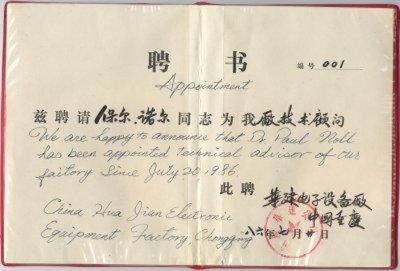 聘 书
编号 001
Appointment
兹聘请 保尔.诺尔 同志为我廠技术顾问
We are happy to announce that Dr Paul Noll
has been appointed technical advisor of our
factory Since July 20 1986.
此聘
華建电子设备廠
中国重慶
China Hua Jian Electronic
Equipment Factory Chongqing
八六年七月廿日